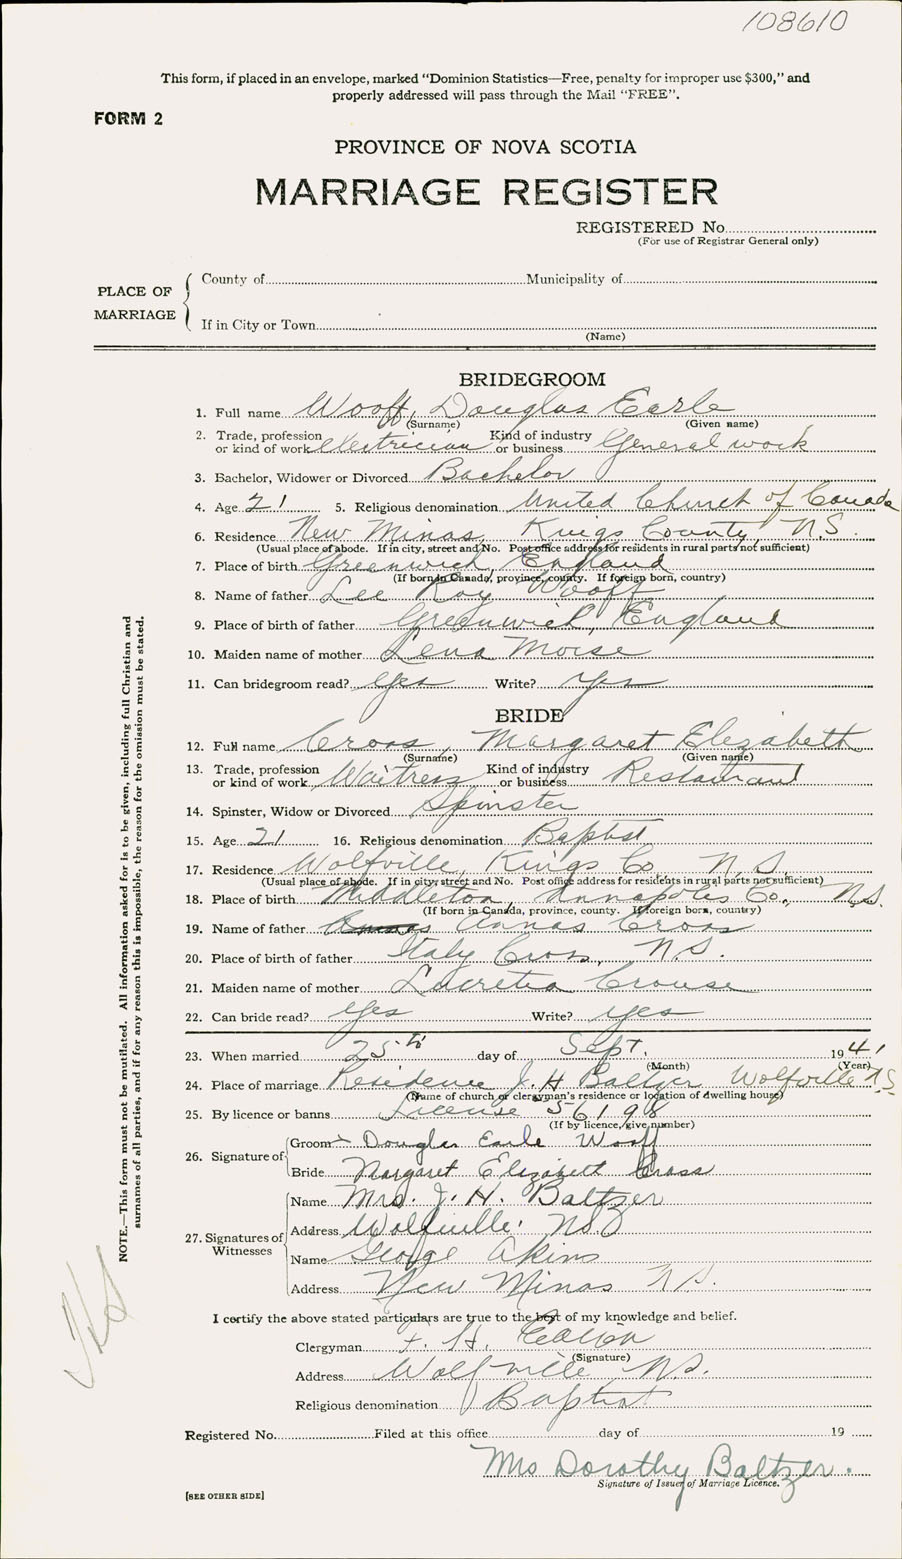 108610
This form, if placed in an envelope, marked "Dominion Statistics—Free, penalty for improper use $300," and
properly addressed will pass through the Mail "FREE".
FORM 2
PROVINCE OF NOVA SCOTIA
MARRIAGE REGISTER
REGISTERED No.
(For use of Registrar General only)
PLACE OF MARRIAGE
County of Municipality of
If in City or Town
(Name)
BRIDEGROOM
1. Full name Wooff, Douglas Earle
(Surname) (Given name)
2. Trade, profession or kind of work electrician Kind of industry or business General work
3. Bachelor, Widower or Divorced Bachelor
4. Age 21 5. Religious denomination United Church of Canada
6. Residence New Minas, Kings County, N.S.
(Usual place of abode. If in city, street and No. Post office address for residents in rural parts not sufficient)
7. Place of birth Greenwich, England
(If born in Canada, province, county. If foreign born, country)
8. Name of father Lee Roy Wooff
9. Place of birth of father Greenwich, England
10. Maiden name of mother Lena Morse
11. Can bridegroom read? yes Write? yes
BRIDE
12. Full name Cross, Margaret Elezabeth
(Surname) (Given name)
13. Trade, profession or kind of work Waitress Kind of industry or business Restaurant
14. Spinster, Widow or Divorced Spinster
15. Age 21 16. Religious denomination Baptist
17. Residence Wolfville, Kings Co N.S.
(Usual place of abode. If in city, street and No. Post office address for residents in rural parts not sufficient)
18. Place of birth Middleton, Annapolis Co., N.S.
(If born in Canada, province, county. If foreign born, country)
19. Name of father Annas Cross
20. Place of birth of father Italy Cross, N.S.
21. Maiden name of mother Lucretia Crouse
22. Can bride read? yes Write? yes
23. When married 25th day of Sept. 1941
(Month) (Year)
24. Place of marriage Residence J. H Baltzer Wolfville N.S.
(Name of church or clergyman's residence or location of dwelling house)
25. By licence or banns License 56198
(If by licence, give number)
26. Signature of Groom Douglas Earle Wooff
Bride Margaret Elizabeth Cross
27. Signatures of Witnesses Name Mrs. J. H. Baltzer
Address Wolfville, N.S.
Name George Akins
Address New Minas N.S.
I certify the above stated particulars are true to the best of my knowledge and belief.
Clergyman F. H. Eaton
(Signature)
Address Wolfville N.S.
Religious denomination Baptist
Registered No. Filed at this office day of 19
Mrs Dorothy Baltzer.
Signature of Issuer of Marriage Licence.
[SEE OTHER SIDE]
NOTE.—This form must not be mutilated. All information asked for is to be given, including full Christian and
surnames of all parties, and if for any reason this is impossible, the reason for the omission must be stated.